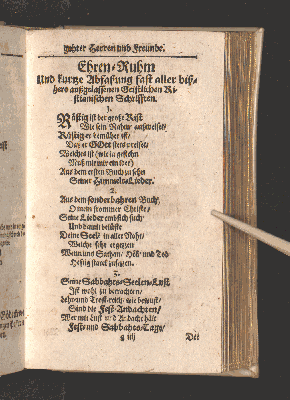 guhter Herren und Freunde.
Ehren-Ruhm
Und kurtze Abfasung fast aller biß-
hers außgelassenen Geistlichen Ri-
stianischen Schrifften.
1.
Rüstig ist der große Rist
Wie sein Nahme außweiset/
Rüstig er bemühet ist/
Daß er GOtt stets preiset/
Welches ist
Aus dem ersten Buch zu sehn
Seiner Himmels-Lieder.
2.
Aus dem sonderbahren Buch/
O mein frommer Christe/
Seine Lieder
Und damit
Deine Seel' in aller Noht/
Welche
Wenn uns Sathan/ Höll' und Tod
Hefftig starck zusetzen.
3.
Seine Sabbahts-Seelen-Lust
Ist wohl zu betrachten/
Lehr und Trost-reich/ wie bewust/
Sind die Fest-Andachten/
Wer mit Lust und Andacht hält
Fest- und Sabbahts-Tage/
g iiij Die